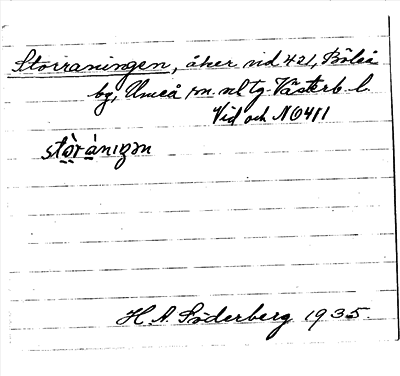 Storraningen, åker vid 421, Böleå
by, Umeå sn. nl tg. Västerb. l.
Vid och NO 411
stòrànıŋən
H. A. Söderberg 1935.